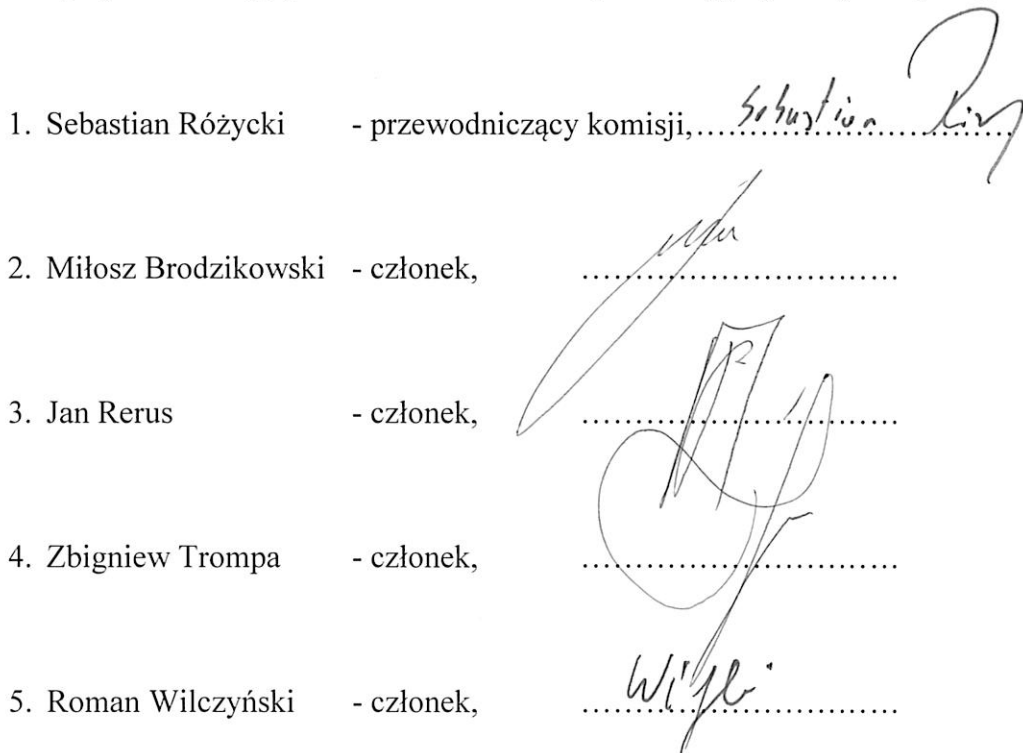 1. Sebastian Różycki - przewodniczący komisji,.... Sebastian
2. Miłosz Brodzikowski - członek, ....................................
3. Jan Rerus - członek, ....................................
4. Zbigniew Trompa - członek, ....................................
5. Roman Wilczyński - członek, ....................................